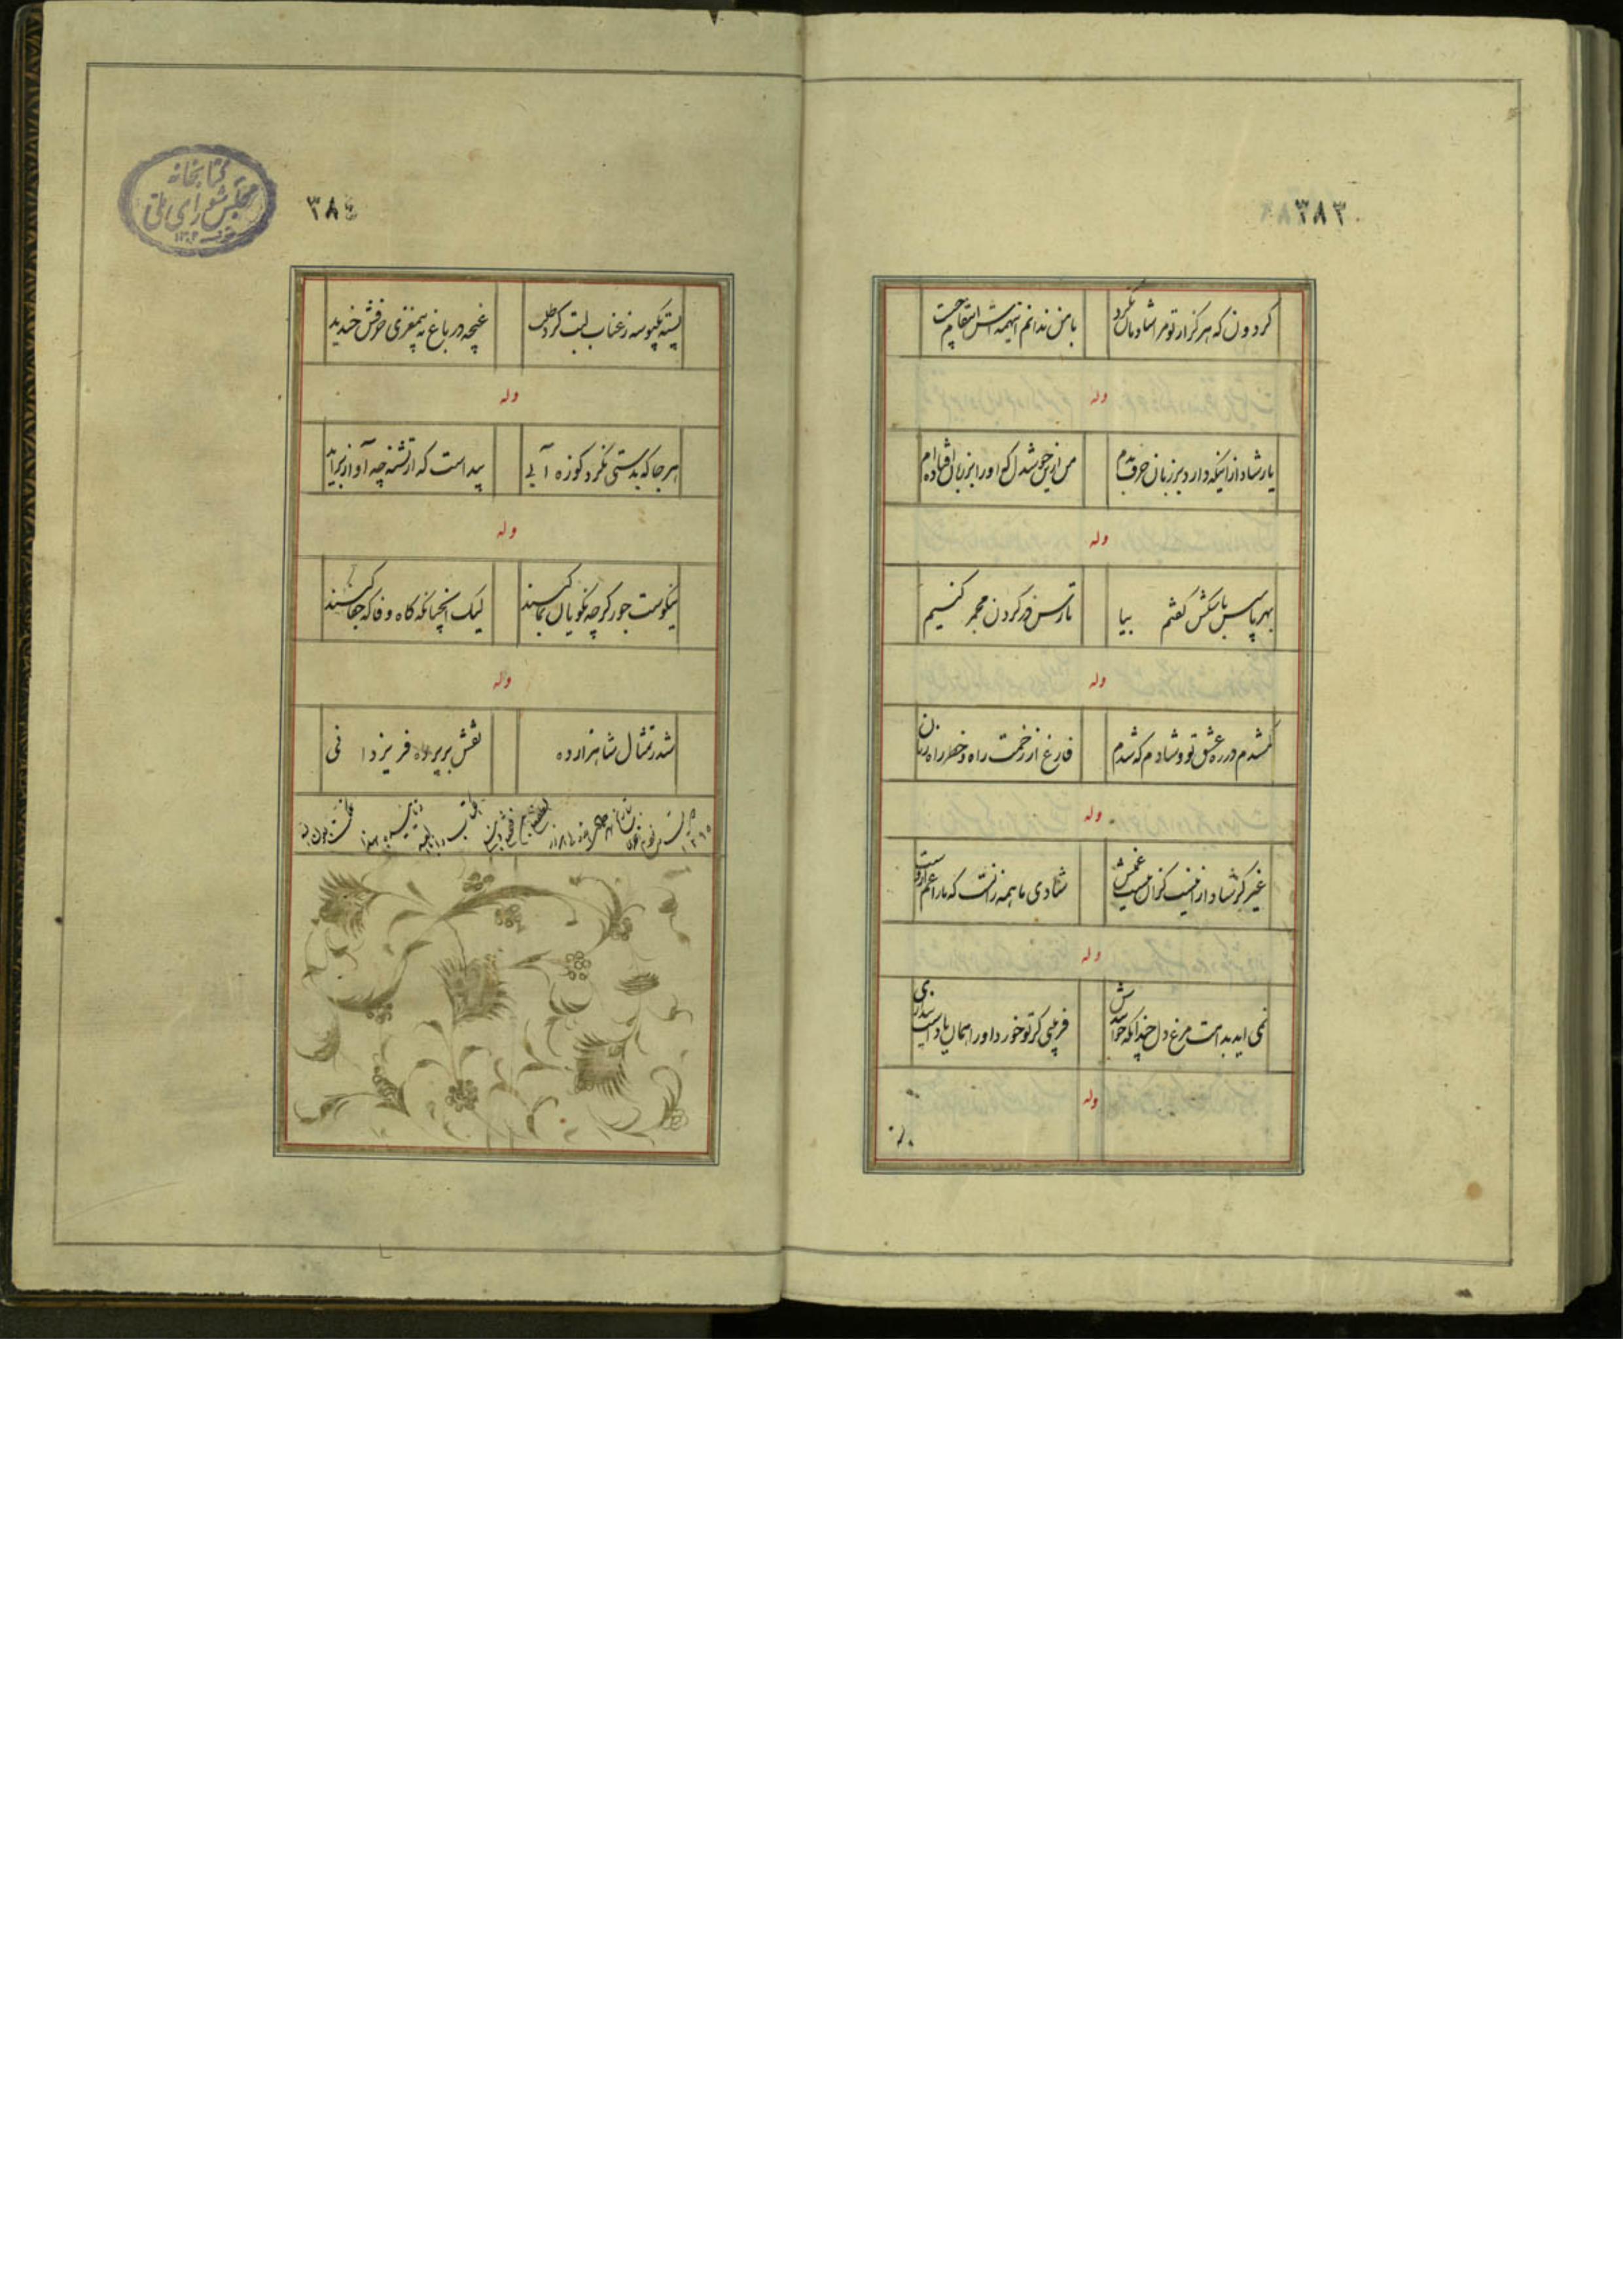 ۳۸۳
گردون که هرگز از تو مرا شادمان نکرد
با من ندانم اینهمه اش انتقام چیست
وله
یار شاد از اینکه دارد بر زبان حرف بدم
من از این خوشدل که او را بر زبان افتاده ام
وله
بهر پاس باسکش گفتم بیا
تا رسن در گردن مجمر کنیم
وله
گمشدم در ره عشق تو و شادم که شدم
فارغ از زحمت راه و خطر راه زنان
وله
غیر گر شاد از اینست کز آن نیست غمش
شادی ما همه زانست که ما را غم اوست
وله
نمی اید بدامت مرغ دل چندانکه خوانندش
فریبی کز تو خورد اورا همان یاد است پنداری
وله
۳۸٤
کتابخانه
مجلس شورای ملی
پسته یکبوسه ز عناب لبت کرد طلب
غنچه در باغ به بیمغزی حرفش خندید
وله
هر جا که بدستی نگرد کوزه آبی
پیداست که از تشنه چه آواز براید
وله
نیکوست جور گرچه نکویان بما کنند
لیک انچنانکه گاه وفا گه جفا کنند
وله
شد ز تمثال شاهزاده
نقش بر پرده فر یزدانی
۱۲۶۵